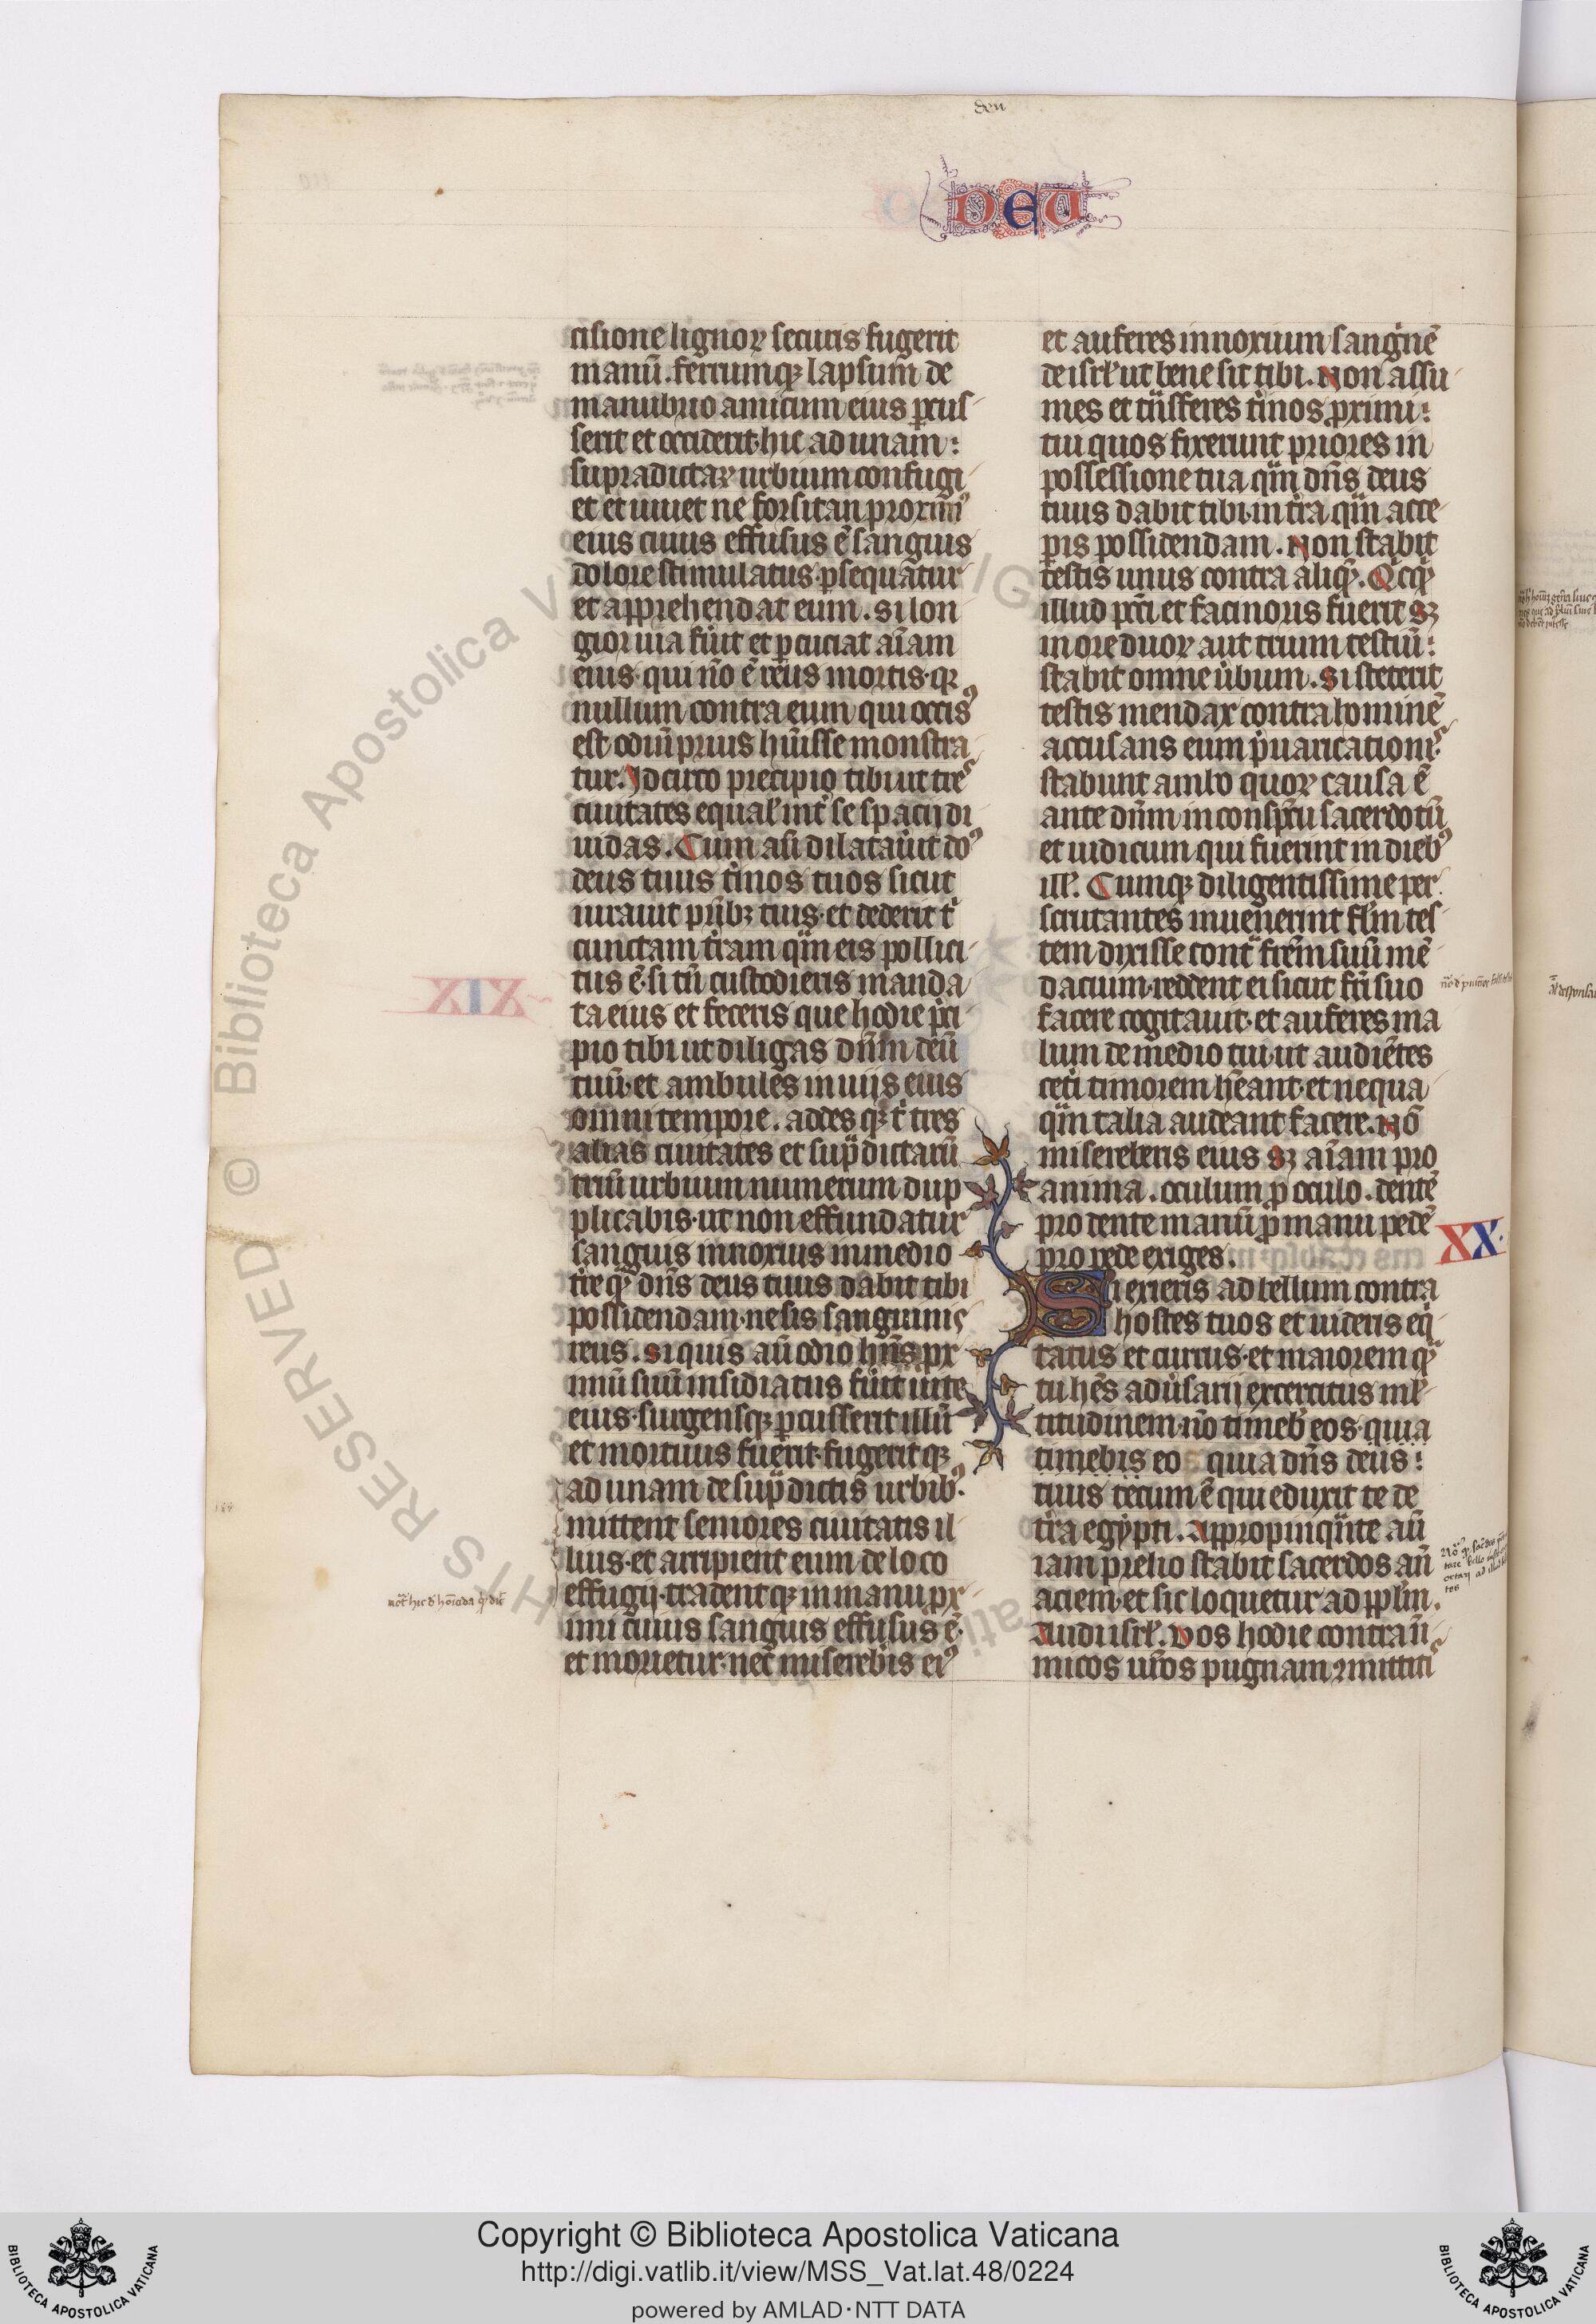 deu
DEU
cisione lignoꝝ securis fugerit
manu᷒. ferrumqꝫ lapsum de
manubrio amicum eius ꝑcus
serit et occiderit· hic ad unam
supradictaꝝ urbium confugi
et et uiuet ne forsitan proxim᷒
eius cuius effusus ē sanguis
dolore stimulatus· ꝑsequatur
et apprehendat eum. si lon
gior uia fu͛it et ꝑcuciat aīam
eius· qui nō ē reus mortis· qꝛ
nullum contra eum qui occis᷒
est odiū prius huīsse monstra
tur. Idcirco precipio tibi ut tres
ciuitates equał int͛ se spacij di
uidas. Cum aū dilatau͛it do᷒
deus tuus t͛minos tuos sicut
iurauit pr̄ibꝫ tuis· et dederit tⁱ
cunctam t͛ram qͣm eis pollici
tus ē· si tn̄ custodieris manda
ta eius et feceris que hodie p̄ci
pio tibi ut diligas dn̄m deū
tuū· et ambules in uijs eius
omni tempore. addes qꝫ tⁱ tres
alias ciuitates et supͣdictarū
triū urbium numerum dup
plicabis· ut non effundatur
sanguis innoxius in medio
t͛re qͣm dn̄s deus tuus dabit tibi
possidendam· ne sis sanguinis
reus. Si quis aū odio hn̄s ꝓx
imū suū insidiatus fu͛it uite
eius· surgensqꝫ ꝑcusserit illū
et mortuus fuerit· fugeritqꝫ
ad unam de supͣdictis urbib᷒.
mittent seniores ciuitatis il
lius· et arripient eum de loco
effugij· tradentqꝫ in manu ꝓx
imi cuius sanguis effusus ē·
et morietur· nec miserebis ei᷒
et auferes innoxium sangⁱnē
de isrł ut bene sit tibi. Non assu
mes et tn̄sferes t͛minos ꝓximi
tui quos fixerunt priores in
possessione tua qͣm dn̄s deus
tuus dabit tibi· in t͛ra qͣm acce
ꝑis possidendam. Non stabit
testis unus contra aliqͤ. Qⁱcqͥd
illud pc̄ti et facinoris fuerit sꝫ
in ore duoꝝ aut trium testiū
stabit omne u͛bum. Si steterit
testis mendax contra hominē
accusans eum p̄uaricationis
stabunt ambo quoꝝ causa ē
ante dn̄m in consp̄cu sacerdotū
et iudicum qui fuerint in dieb᷒
ill͛. Cumqꝫ diligentissime per
scrutantes inuenerint fl̄m tes
tem dixisse contͣ fr̄em suū mē
dacium· reddent ei sicut fr̄i suo
facere cogitauit· et auferes ma
lum de medio tui· ut audiētes
cet͛i timorem hēant· et nequa
qͣm talia audeant facere. Nō
misereberis eius sꝫ aīam pro
anima. oculum ꝓ oculo. dentē
pro dente manū ꝓ manu pedē
pro pede exiges.
XX
Si exieris ad bellum contra
hostes tuos et uideris eqⁱ
tatus et currus· et maiorem qͣm
tu hēs adu͛sarij exercitus ml̄
titudinem· nō timeb͛ eos· quia
timebis eo quia dn̄s deus
tuus tecum ē qui eduxit te de
t͛ra egypti. Appropinqͣnte aū
iam prelio stabit sacerdos an̄
aciem· et sic loquetur ad ppl̄m.
Audi isrł. Vos hodie contra in
micos ur̄os pugnam ꝯmittitis
Copyright © Biblioteca Apostolica Vaticana
http://digi.vatlib.it/view/MSS_Vat.lat.48/0224
powered by AMLAD·NTT DATA
BIBLIOTECA APOSTOLICA VATICANA
BIBLIOTECA APOSTOLICA VATICANA